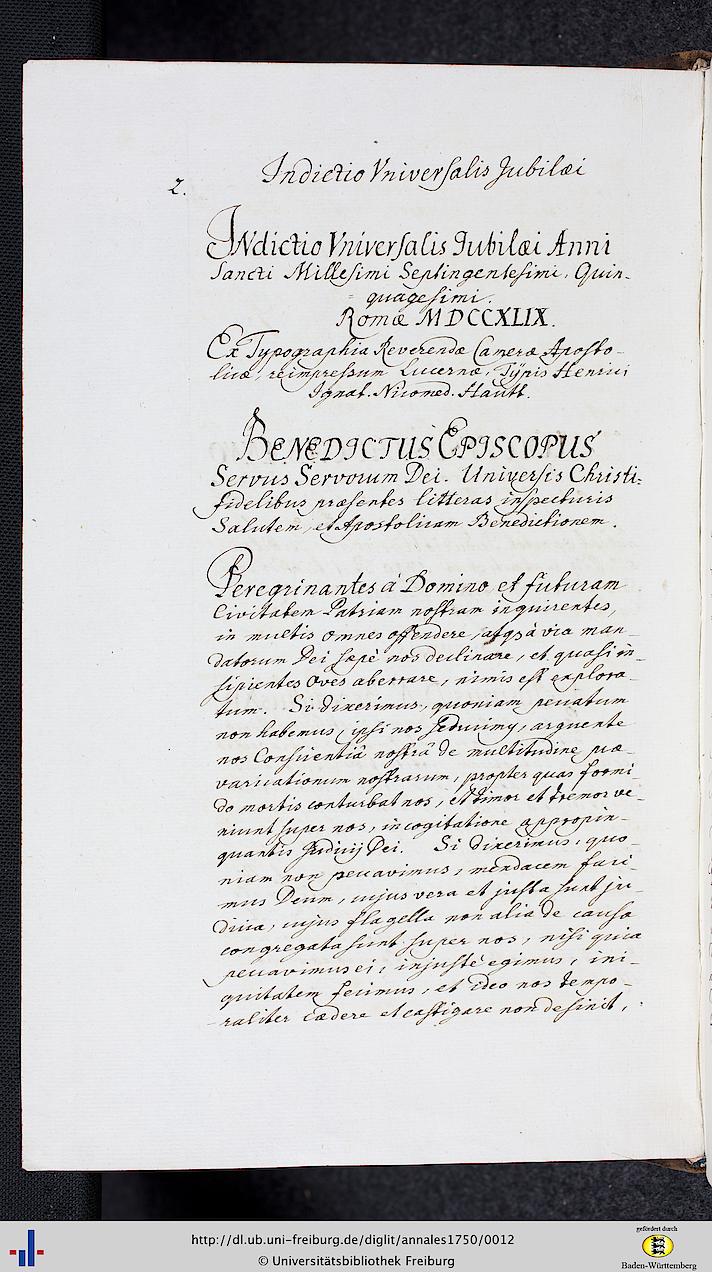 Indictio Vniversalis Jubilæi
2.
INdictio Vniversalis Jubilæi Anni
Sancti Millesimi Septingentesimi, Quin-
quagesimi.
Romæ MDCCXLIX.
Ex Typographia Reverendæ Cameræ Aposto-
licæ, reimpressum Lucernæ, Typis Henrici
Ignat. Nicomed. Hautt.
BENEDICTUS EPISCOPUS
Servus Servorum Dei. Universis Christi-
fidelibus præsentes litteras inspecturis
Salutem, et Apostolicam Benedictionem.
Peregrinantes à Domino, et futuram
Civitatem Patriam nostram inquirentes,
in multis omnes offendere, atq; à via man-
datorum Dei sæpè nos declinare, et quasi in-
sipientes Oves aberrare, nimis est explora-
tum. Si dixerimus, quoniam peccatum
non habemus, ipsi nos seducimus, arguente
nos Conscientiâ nostrâ de multitudine præ-
varicationum nostrarum, propter quas formi-
do mortis conturbat nos, et timor et tremor ve-
niunt super nos, in cogitatione appropin-
quantis Judicij Dei. Si dixerimus, quo-
niam non peccavimus, mendacem faci-
mus Deum, cujus vera et justa sunt ju-
dicia, cujus flagella non alia de causa
congregata sunt super nos, nisi quia
peccavimus ei, injustè egimus, ini-
quitatem fecimus, et ideo nos tempo-
raliter cædere et castigare non desinit,
http://dl.ub.uni-freiburg.de/diglit/annales1750/0012
© Universitätsbibliothek Freiburg
gefördert durch
Baden-Württemberg